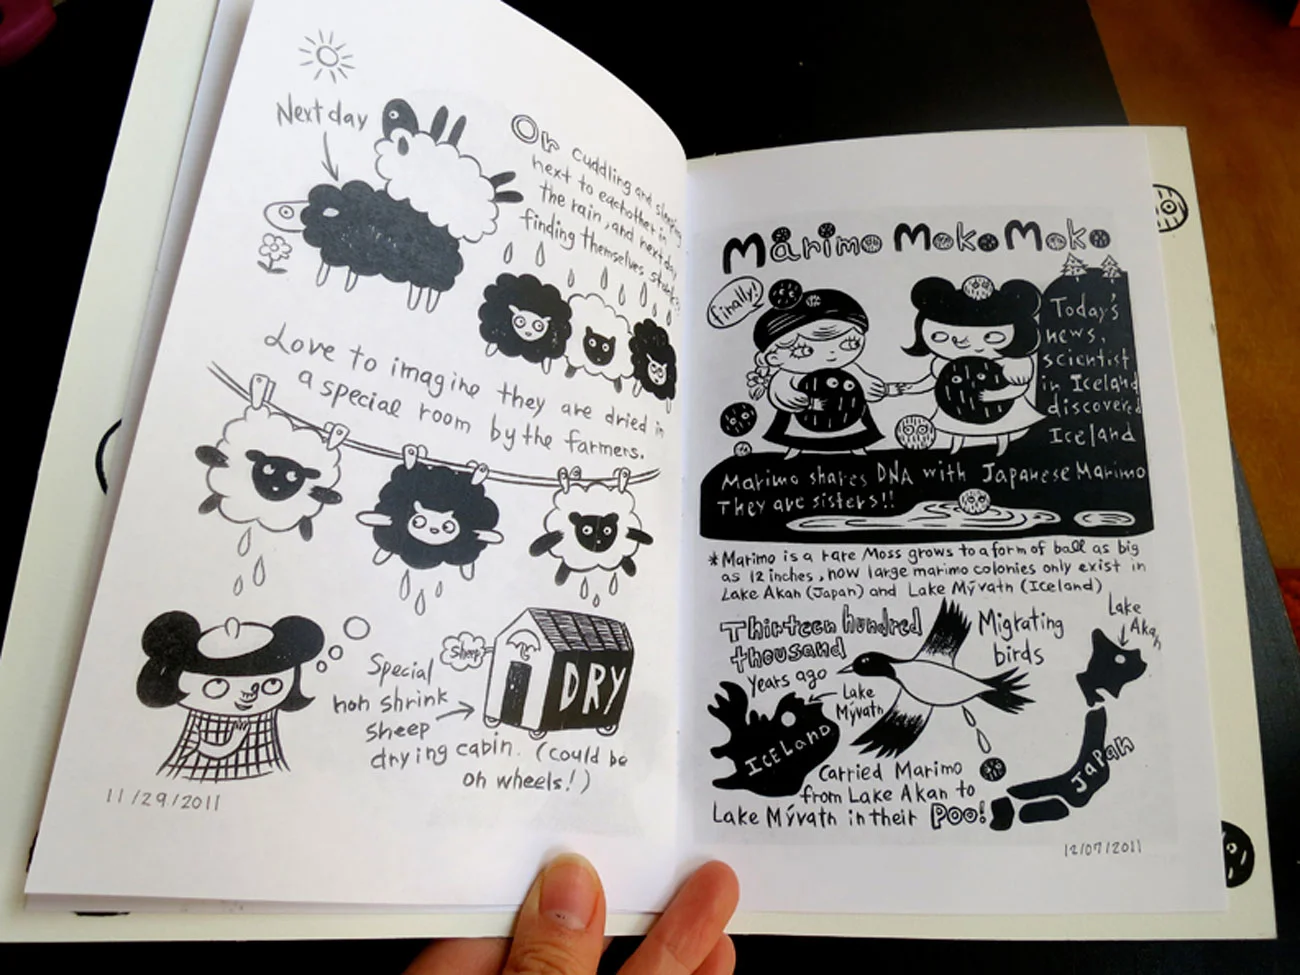 Next day
Or cuddling and sleeping
next to eachother in
the rain, and next day
finding themselves stuck?
Love to imagine they are dried in
a special room by the farmers.
Sheep
DRY
Special
non shrink
sheep
drying cabin. (could be
on wheels!)
11/29/2011
Marimo Moko Moko
finally!
Today's
news,
scientist
in Iceland
discovered
Iceland
Marimo shares DNA with Japanese Marimo
They are sisters!!
*Marimo is a rare Moss grows to a form of ball as big
as 12 inches, now large marimo colonies only exist in
Lake Akan (Japan) and Lake Mývatn (Iceland)
Thirteen hundred
thousand
years ago
Migrating
birds
Lake
Akan
Lake
Mývatn
ICELAND
JAPAN
Carried Marimo
from Lake Akan to
Lake Mývatn in their Poo!
12/07/2011